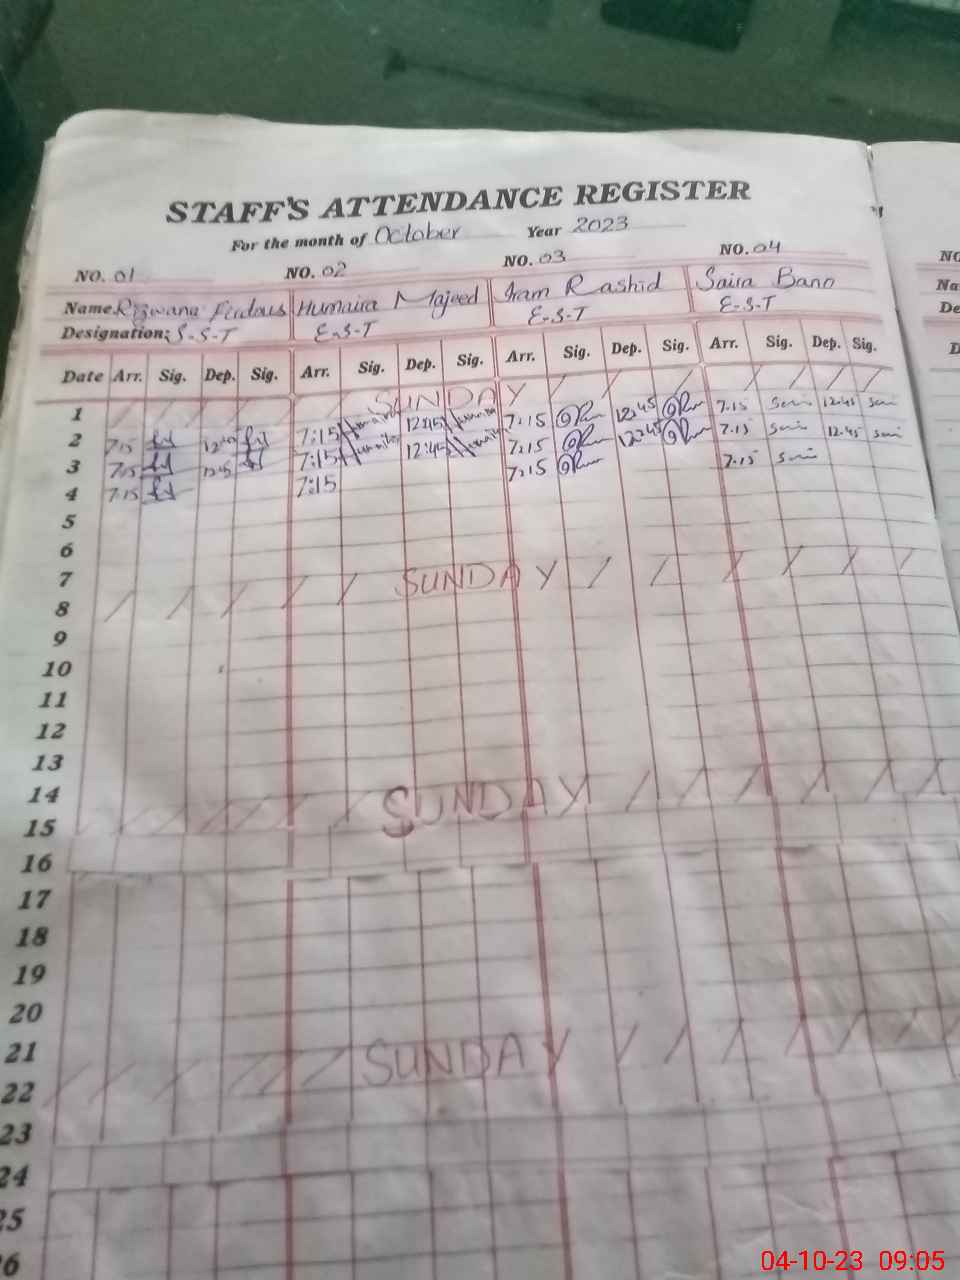 STAFF'S ATTENDANCE REGISTER
For the month of October Year 2023
NO. 01 NO. 02 NO. 03 NO. 04 NO
Name Rizwana Firdous Humaira Majeed Iram Rashid Saira Bano Na
Designation: S-S-T E-S-T E-S-T E-S-T De
Date Arr. Sig. Dep. Sig. Arr. Sig. Dep. Sig. Arr. Sig. Dep. Sig. Arr. Sig. Dep. Sig. D
1 SUNDAY
2 7:15 12:45 7:15 Humaira 12:45 Humaira 7:15 12:45 7:15 12:45
3 7:15 12:45 7:15 Humaira 12:45 Humaira 7:15 12:45 7:15 12:45
4 7:15 7:15 7:15 7:15
5
6
7
8 SUNDAY
9
10
11
12
13
14
15 SUNDAY
16
17
18
19
20
21
22 SUNDAY
23
24
25
26
04-10-23 09:05